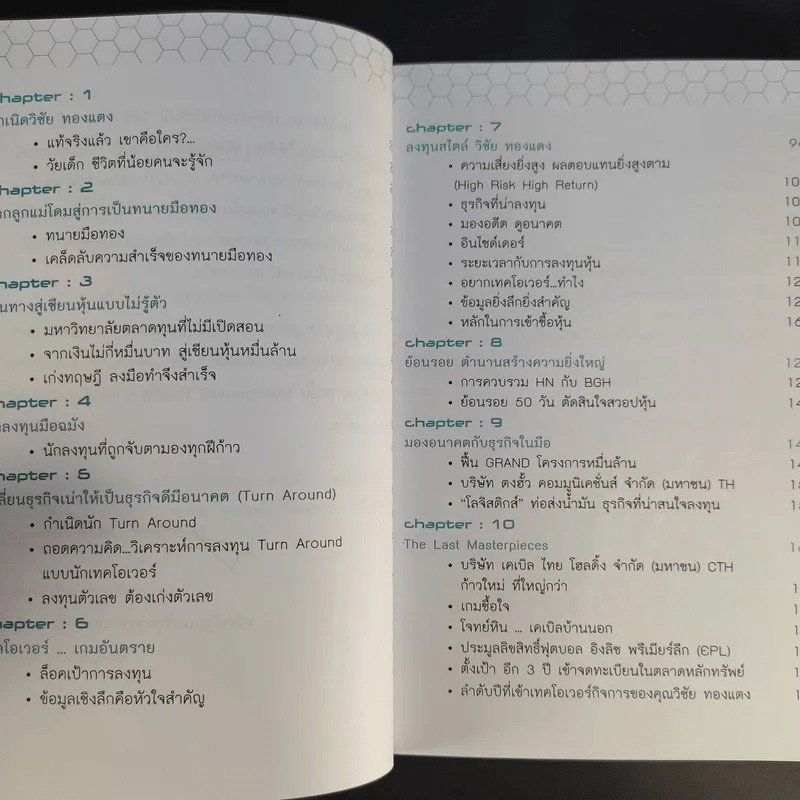 hapter : 1
เนิดวิชัย ทองแตง
• แท้จริงแล้ว เขาคือใคร?...
• วัยเด็ก ชีวิตที่น้อยคนจะรู้จัก
hapter : 2
กลูกแม่โดมสู่การเป็นทนายมือทอง
• ทนายมือทอง
• เคล็ดลับความสำเร็จของทนายมือทอง
hapter : 3
นทางสู่เซียนหุ้นแบบไม่รู้ตัว
• มหาวิทยาลัยตลาดทุนที่ไม่มีเปิดสอน
• จากเงินไม่กี่หมื่นบาท สู่เซียนหุ้นหมื่นล้าน
• เก่งทฤษฎี ลงมือทำจึงสำเร็จ
hapter : 4
ลงทุนมือฉมัง
• นักลงทุนที่ถูกจับตามองทุกฝีก้าว
hapter : 5
ลี่ยนธุรกิจเน่าให้เป็นธุรกิจดีมีอนาคต (Turn Around)
• กำเนิดนัก Turn Around
• ถอดความคิด...วิเคราะห์การลงทุน Turn Around
แบบนักเทคโอเวอร์
• ลงทุนตัวเลข ต้องเก่งตัวเลข
apter : 6
โอเวอร์ ... เกมอันตราย
• ล็อคเป้าการลงทุน
• ข้อมูลเชิงลึกคือหัวใจสำคัญ
chapter : 7
ลงทุนสไตล์ วิชัย ทองแตง 9
• ความเสี่ยงยิ่งสูง ผลตอบแทนยิ่งสูงตาม
(High Risk High Return) 10
• ธุรกิจที่น่าลงทุน 10
• มองอดีต ดูอนาคต 10
• อินไซด์เดอร์ 11
• ระยะเวลากับการลงทุนหุ้น 11
• อยากเทคโอเวอร์...ทำไง 12
• ข้อมูลยิ่งลึกยิ่งสำคัญ 12
• หลักในการเข้าซื้อหุ้น 16
chapter : 8
ย้อนรอย ตำนานสร้างความยิ่งใหญ่ 12
• การควบรวม HN กับ BGH 12
• ย้อนรอย 50 วัน ตัดสินใจสวอปหุ้น 14
chapter : 9
มองอนาคตกับธุรกิจในมือ 14
• ฟื้น GRAND โครงการหมื่นล้าน
• บริษัท ตงฮั้ว คอมมูนิเคชั่นส์ จำกัด (มหาชน) TH
• “โลจิสติกส์” ท่อส่งน้ำมัน ธุรกิจที่น่าสนใจลงทุน
chapter : 10
The Last Masterpieces
• บริษัท เคเบิล ไทย โฮลดิ้ง จำกัด (มหาชน) CTH
ก้าวใหม่ ที่ใหญ่กว่า 1
• เกมซื้อใจ 1
• โจทย์หิน ... เคเบิลบ้านนอก 1
• ประมูลลิขสิทธิ์ฟุตบอล อิงลิช พรีเมียร์ลีก (EPL) 1
• ตั้งเป้า อีก 3 ปี เข้าจดทะเบียนในตลาดหลักทรัพย์ 1
• ลำดับปีที่เข้าเทคโอเวอร์กิจการของคุณวิชัย ทองแตง 1